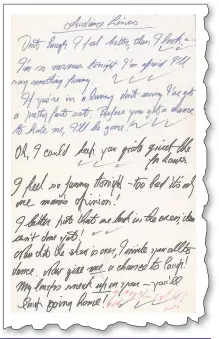 Audience Lines
Don't laugh I feel better than I look
I'm so nervous tonight I'm afraid I'll
say something funny.
If you're in a hurry don't worry I've got
a pretty fast act. Before you get a chance
to hate me, I'll be gone.
Or, I could keep you quite quiet like
for hours
I feel so funny tonight too bad it's only
one man's opinion!
I better put that one back in the oven, it
isn't done yet!
when the show is over, I invite you all to
dance, who give me a chance to laugh!
My laughs sneak up on you - you'll
laugh going home!